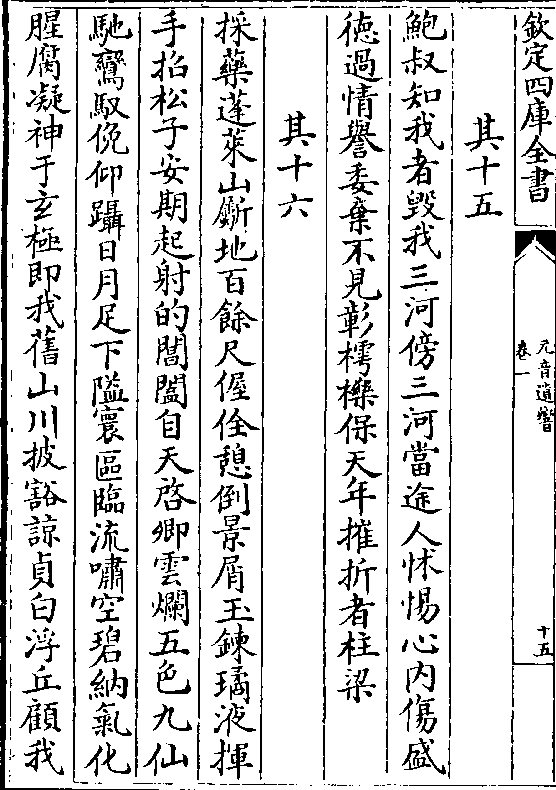 欽定四庫全書
元音遺響
卷一
十五
其十五
鮑叔知我者毀我三河傍三河當途人怵惕心内傷盛
徳過情譽委棄不見彰樗櫟保天年摧折者柱梁
其十六
採藥蓬萊山斸地百餘尺偓佺憩倒景屑玉鍊璚液揮
手招松子安期起射的閶闔自天啓卿雲爛五色九仙
馳鸞馭俛仰躡日月足下隘寰區臨流嘯空碧納氣化
腥腐凝神于玄極即我舊山川披豁諒貞白浮丘顧我